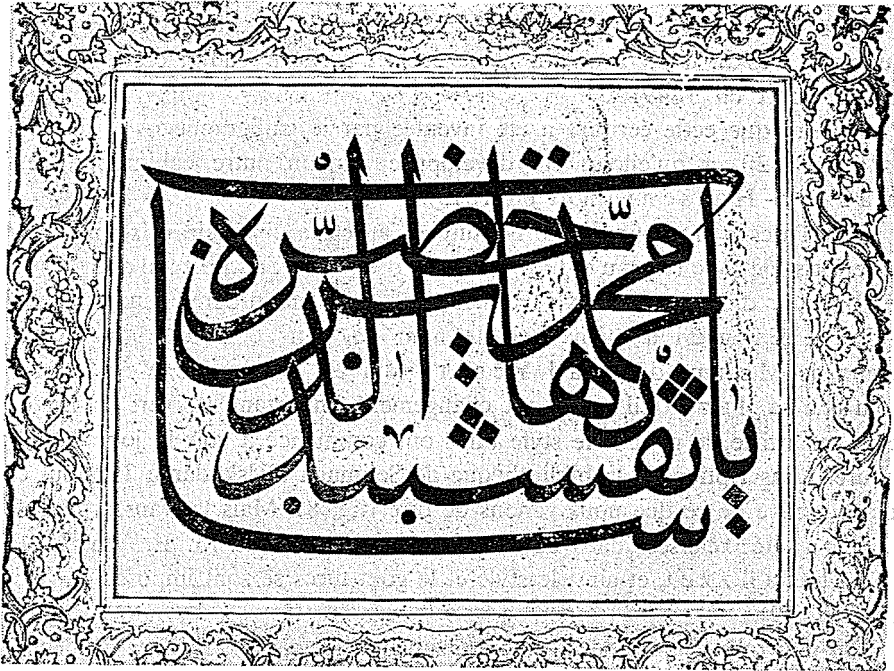 يا حضرت محمد بهاء الدين نقشبند قدس سره